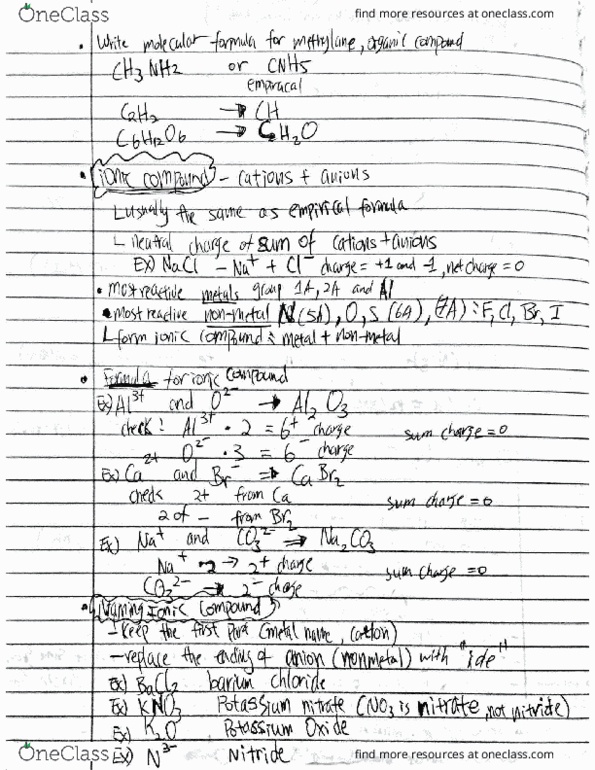 OneClass
find more resources at oneclass.com
• Write molecular formula for methylane, organic compound
CH3NH2 or CNH5
empiracal
C2H2 → CH
C6H12O6 → CH2O
• ionic compound - cations + anions
└ ushally the same as empirical formula
└ neutral charge of sum of cations + anions
Ex) NaCl - Na⁺ + Cl⁻ charge = +1 and -1, net charge = 0
• most reactive metals group 1A, 2A and Al
• most reactive non-metal N(5A), O, S (6A), (7A): F, Cl, Br, I
└ form ionic compound: metal + non-metal
• Formula for ionic compound
Ex) Al³⁺ and O²⁻ → Al2O3
check! Al³⁺ • 2 = 6⁺ charge sum charge = 0
O²⁻ • 3 = 6⁻ charge
Ex) Ca²⁺ and Br⁻ ⇒ CaBr2
check 2+ from Ca sum charge = 0
2 of - from Br2
Ex) Na⁺ and CO3²⁻ ⇒ Na2CO3
Na⁺ • 2 → 2⁺ charge sum charge = 0
CO3²⁻ → 2⁻ charge
• Naming Ionic Compound
- keep the first part (metal name, cation)
- replace the ending of anion (nonmetal) with "ide"
Ex) BaCl2 barium chloride
Ex) KNO3 Potassium nitrate (NO3 is nitrate, not nitride)
Ex) K2O Potassium Oxide
Ex) N³⁻ Nitride
OneClass
find more resources at oneclass.com